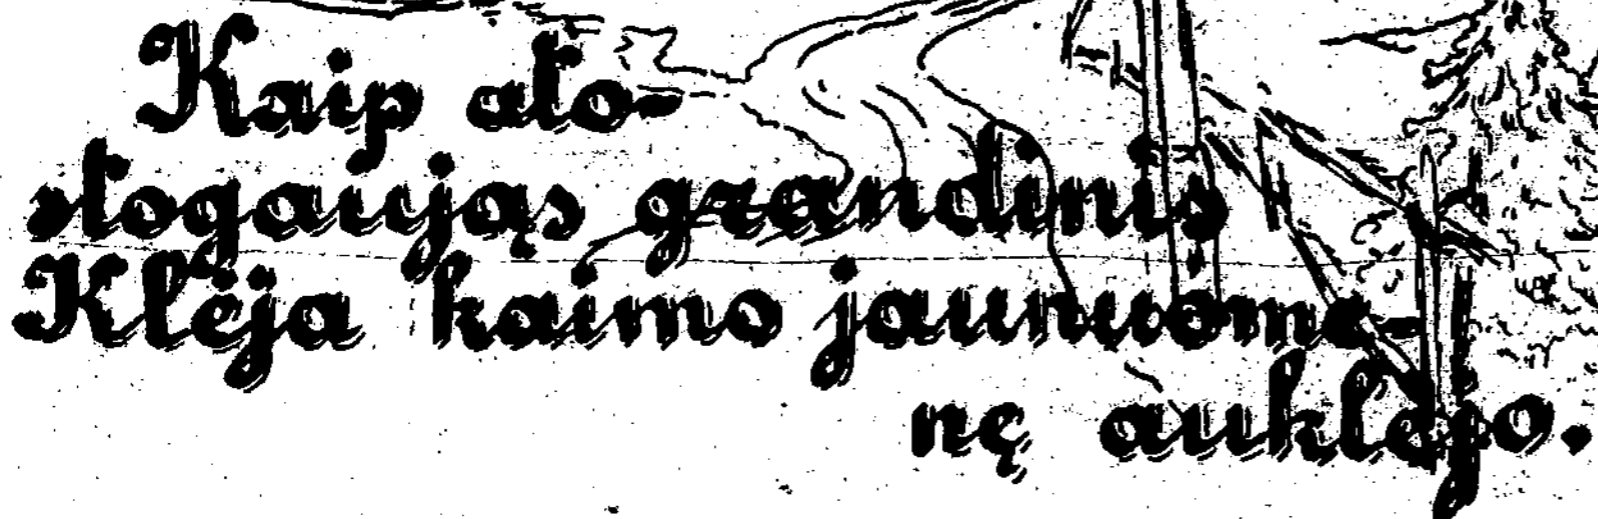 Kaip ato-
stogaująs grandinis
Klėja kaimo jaunuome-
nę auklėjo.